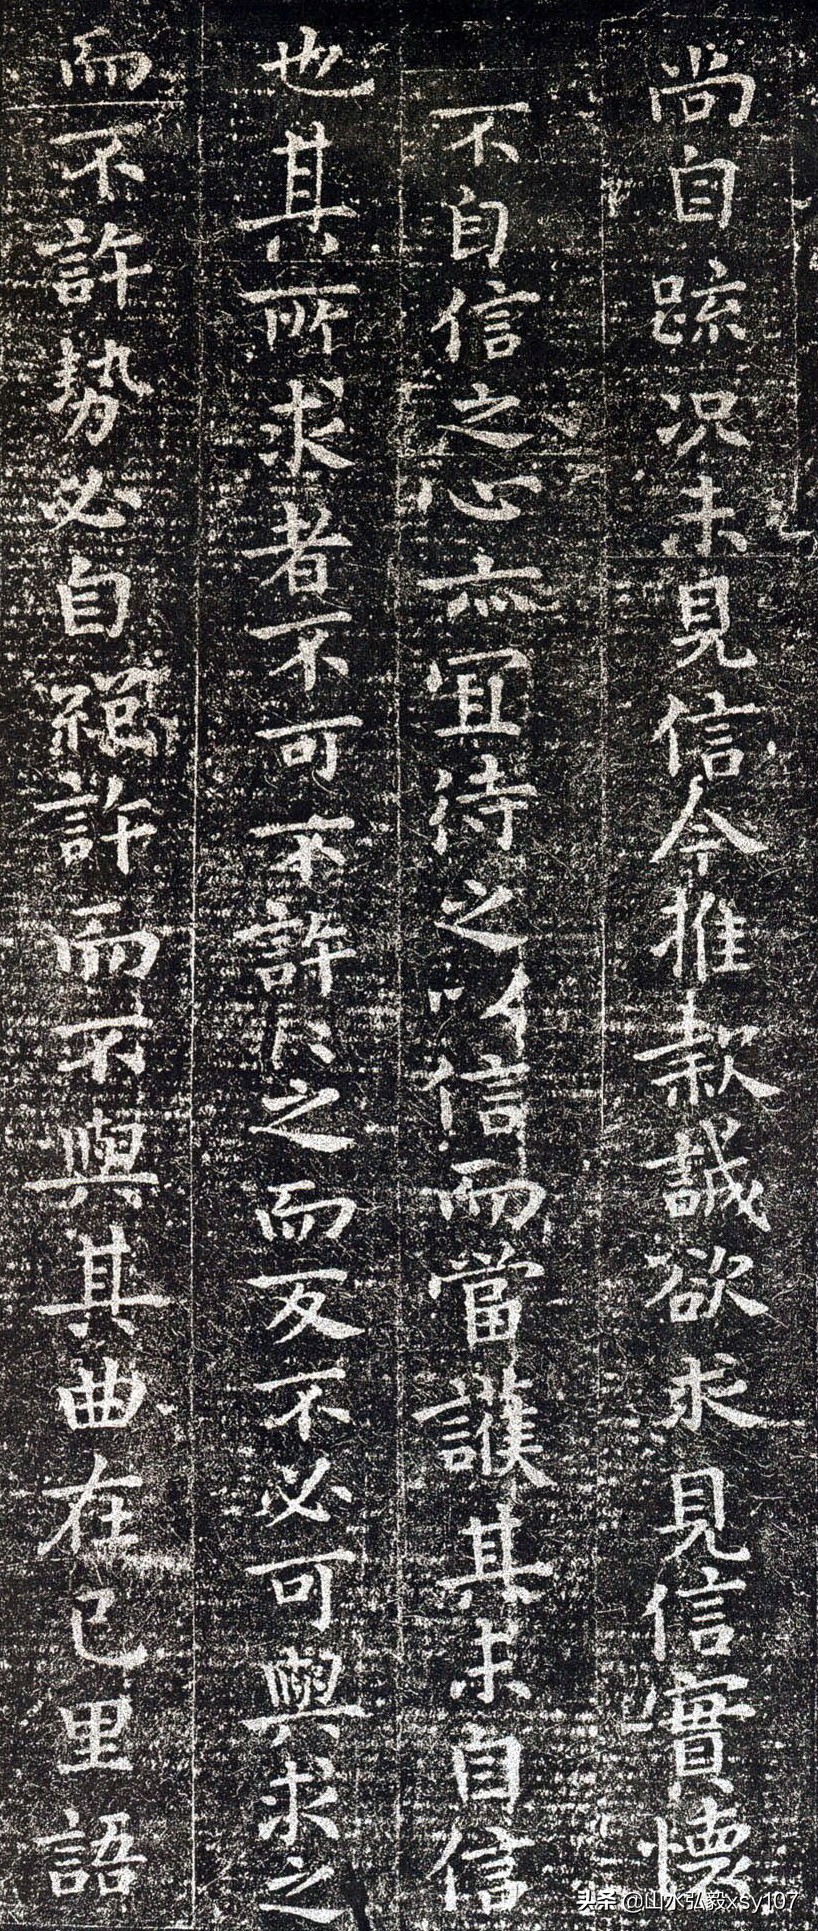 尚自踈况未見信今推款誠欲求見信實懷
不自信之心亦宜待之以信而當護其未自信
也其所求者不可不許〻之而反不必可與求之
而不許勢必自絕許而不與其曲在己里語
头条 @山水弘毅xsy107